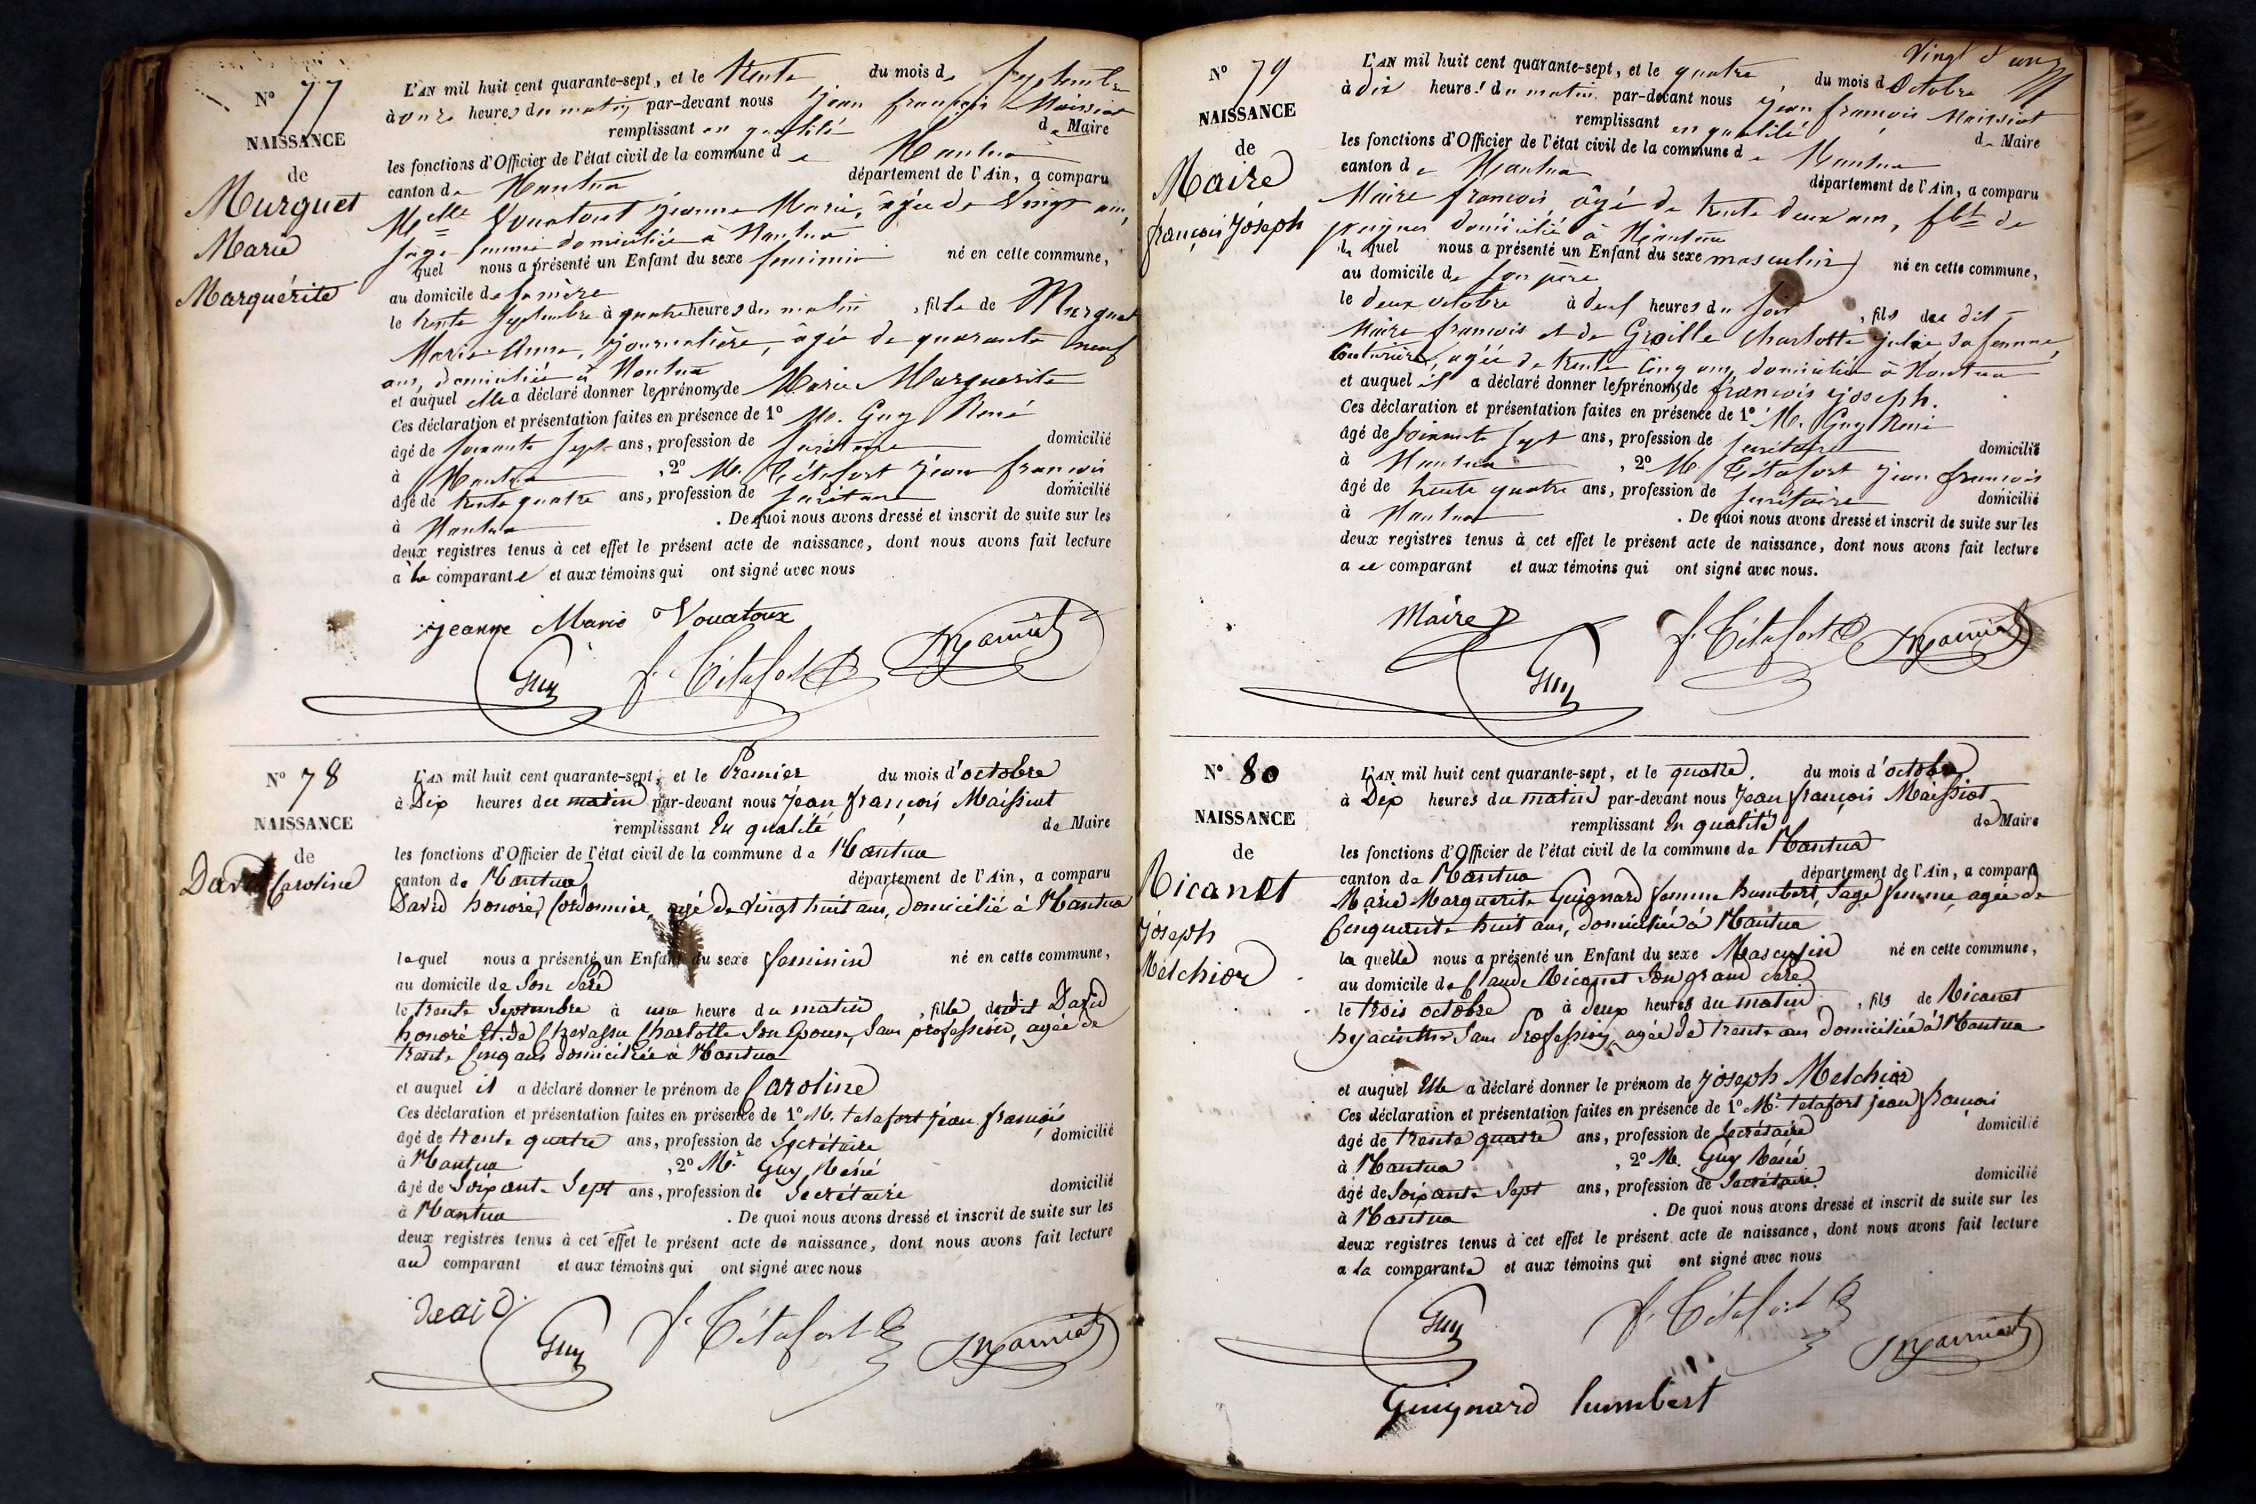 N° 77
NAISSANCE
de
Murguet
Marie
Marguérite
L'AN mil huit cent quarante-sept, et le trente du mois de septembre
à onze heures du matin, par-devant nous Jean françois Maissiat
remplissant en qualité de Maire
les fonctions d'Officier de l'état civil de la commune de Nantua
canton de Nantua département de l'Ain, a comparu
Melle Vouatoux jeanne Marie, âgée de vingt ans,
sage femme domiciliée à Nantua
quel nous a présenté un Enfant du sexe feminin né en cette commune,
au domicile de sa mère
le trente septembre à quatre heures du matin, fille de Murguet
Marie Anne, journalière, âgée de quarante neuf
ans, domiciliée à Nantua
et auquel elle a déclaré donner les prénoms de Marie Marguerite
Ces déclaration et présentation faites en présence de 1° M. Guy René
âgé de soixante sept ans, profession de secrétaire domicilié
à Nantua, 2° M. Tétafort jean francois
âgé de trente quatre ans, profession de secrétaire domicilié
à Nantua. De quoi nous avons dressé et inscrit de suite sur les
deux registres tenus à cet effet le présent acte de naissance, dont nous avons fait lecture
a la comparante et aux témoins qui ont signé avec nous
jeanne Marie Vouatoux
Guy f. Tétafort
N° 78
NAISSANCE
de
David Caroline
L'AN mil huit cent quarante-sept, et le Premier du mois d'octobre
à Dix heures du matin par-devant nous Jean françois Maissiat
remplissant En qualité de Maire
les fonctions d'Officier de l'état civil de la commune de Nantua
canton de Nantua département de l'Ain, a comparu
David honoré, Cordonnier, agé de vingt huit ans, domicilié à Nantua
lequel nous a présenté un Enfant du sexe feminin né en cette commune,
au domicile de Son Père
le trente Septembre à une heure du matin, fille dudit David
honoré Et de Chevassu Charlotte Son Epouse, Sans profession, agée de
trente Cinq ans domiciliée a Nantua
et auquel il a déclaré donner le prénom de Caroline
Ces déclaration et présentation faites en présence de 1° M. tetafort jean françois
âgé de trente quatre ans, profession de Secrétaire domicilié
à Nantua, 2° Mr Guy Réné
âgé de Soixante Sept ans, profession de Secrétaire domicilié
à Nantua. De quoi nous avons dressé et inscrit de suite sur les
deux registres tenus à cet effet le présent acte de naissance, dont nous avons fait lecture
au comparant et aux témoins qui ont signé avec nous
Guy f. Tétafort
Vingt & un
N° 79
NAISSANCE
de
Maire
françois Jóseph
L'AN mil huit cent quarante-sept, et le quatre, du mois d'Octobre
à dix heures du matin par-devant nous Jean françois Maissiat
remplissant en qualité de Maire
les fonctions d'Officier de l'état civil de la commune de Nantua
canton de Nantua département de l'Ain, a comparu
Maire francois, âgé de trente deux ans, fbt de
peignes domicilié à Nantua
le quel nous a présenté un Enfant du sexe masculin né en cette commune,
au domicile de son père
le deux octobre à neuf heures du soir, fils du dit
Maire francois et de Groille Charlotte julie sa femme,
Couturière, agée de trente Cinq ans, domiciliée à Nantua
et auquel il a déclaré donner les prénoms de françois joseph.
Ces déclaration et présentation faites en présence de 1° M. Guy René
âgé de Soixante sept ans, profession de secrétaire domicilié
à Nantua, 2° M. Tétafort jean françois
âgé de trente quatre ans, profession de secrétaire domicilié
à Nantua. De quoi nous avons dressé et inscrit de suite sur les
deux registres tenus à cet effet le présent acte de naissance, dont nous avons fait lecture
a ce comparant et aux témoins qui ont signé avec nous.
Maire f. Tétafort
Guy
N° 80
NAISSANCE
de
Nicanet
Jóseph
Melchior
L'AN mil huit cent quarante-sept, et le quatre. du mois d'octobre
à Dix heures du matin par-devant nous Jean françois Maissiat
remplissant En qualité de Maire
les fonctions d'Officier de l'état civil de la commune de Nantua
canton de Nantua département de l'Ain, a comparu
Marie Marguerite Guignard femme humbert, Sage femme, agée de
Cinquante huit ans, domiciliée à Nantua
la quelle nous a présenté un Enfant du sexe Masculin né en cette commune,
au domicile de Claude Nicanet Son grand Père
le trois octobre à deux heures du matin, fils de Nicanet
hyacinthe Sans Profession, agée de trente ans domiciliée à Nantua
et auquel Elle a déclaré donner le prénom de jóseph Melchior
Ces déclaration et présentation faites en présence de 1° Mr tetafort jean françois
âgé de trente quatre ans, profession de Secrétaire domicilié
à Nantua, 2° M. Guy Réné
âgé de Soixante Sept ans, profession de Secrétaire domicilié
à Nantua. De quoi nous avons dressé et inscrit de suite sur les
deux registres tenus à cet effet le présent acte de naissance, dont nous avons fait lecture
a la comparante et aux témoins qui ont signé avec nous
Guy f. Tétafort
Guignard humbert